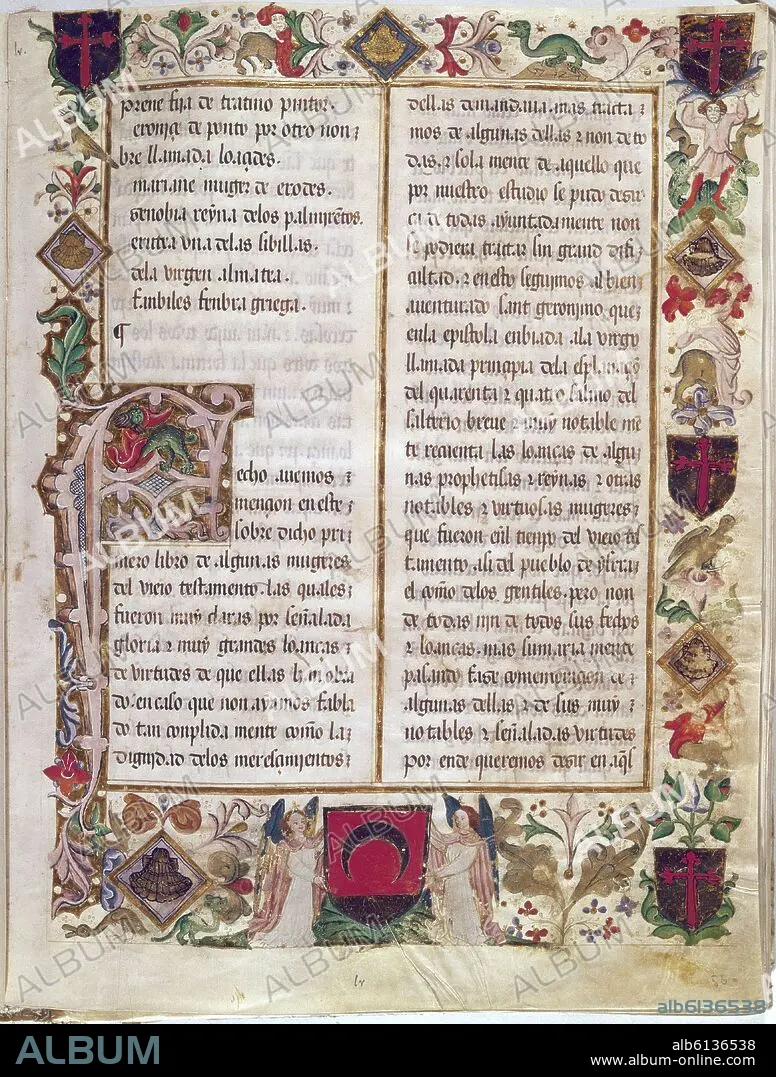 lv.
prene fija de tratino pintor.
eronice de ponto por otro non
bre llamada loançes.
mariane muger de erodes.
senobia reyna delos palmirenos.
eritea vna delas sibillas.
dela virgen almatea.
¶
echo auemos ⁊
mençion en este
sobre dicho pri
mero libro de algunas mugeres
del vieio testamento. las quales
fueron muy claras por señalada
gloria ⁊ muy grandes loanças
de virtudes de que ellas han obra
do. en caso que non ayamos fabla
do tan complida mente como la
dignidad delos meresçimientos
dellas demandaua. mas tracta
mos de algunas dellas ⁊ non de to
das. ⁊ sola mente de aquello que
por nuestro estudio se pudo desir
ca de todas ayuntadamente non
se podiera tractar sin grand difi
cultad. ⁊ en esto seguimos al bien
auenturado sant geronimo que
enla epistola enbiada ala virgen
llamada prinçipia dela esplanaçion
del quarenta ⁊ quatro salmo del
salterio breue ⁊ muy notable me
te recuenta las loanças de algu
nas prophetisas ⁊ reynas ⁊ otras
notables ⁊ virtuosas mugeres
que fueron enl tienpo del vieio tes
tamento. asi del pueblo de ysrael
como delos gentiles. pero non
de todas nin de todos sus fechos
⁊ loanças. mas sumaria mente
pasando fase comemoraçion de
algunas dellas ⁊ de sus muy
notables ⁊ señaladas virtudes
por ende queremos desir en aqste
lv
56
ALBUM
alb6136538
ALBUM
alb6136538
www.album-online.com